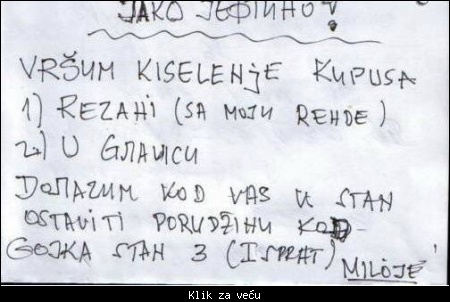 ЈАКО ЈЕФТИНО!
VRŠUM KISELENjE KUPUSA
1) REZAHI (SA MOJU REHDE)
2) U GЛAVICU
DOЛAZUM KOD VAS U STAN
OSTAVITI PORUDŽIHU KOD
GOJKA STAN 3 (ISPRAT)
MILOJE
Klik za veću